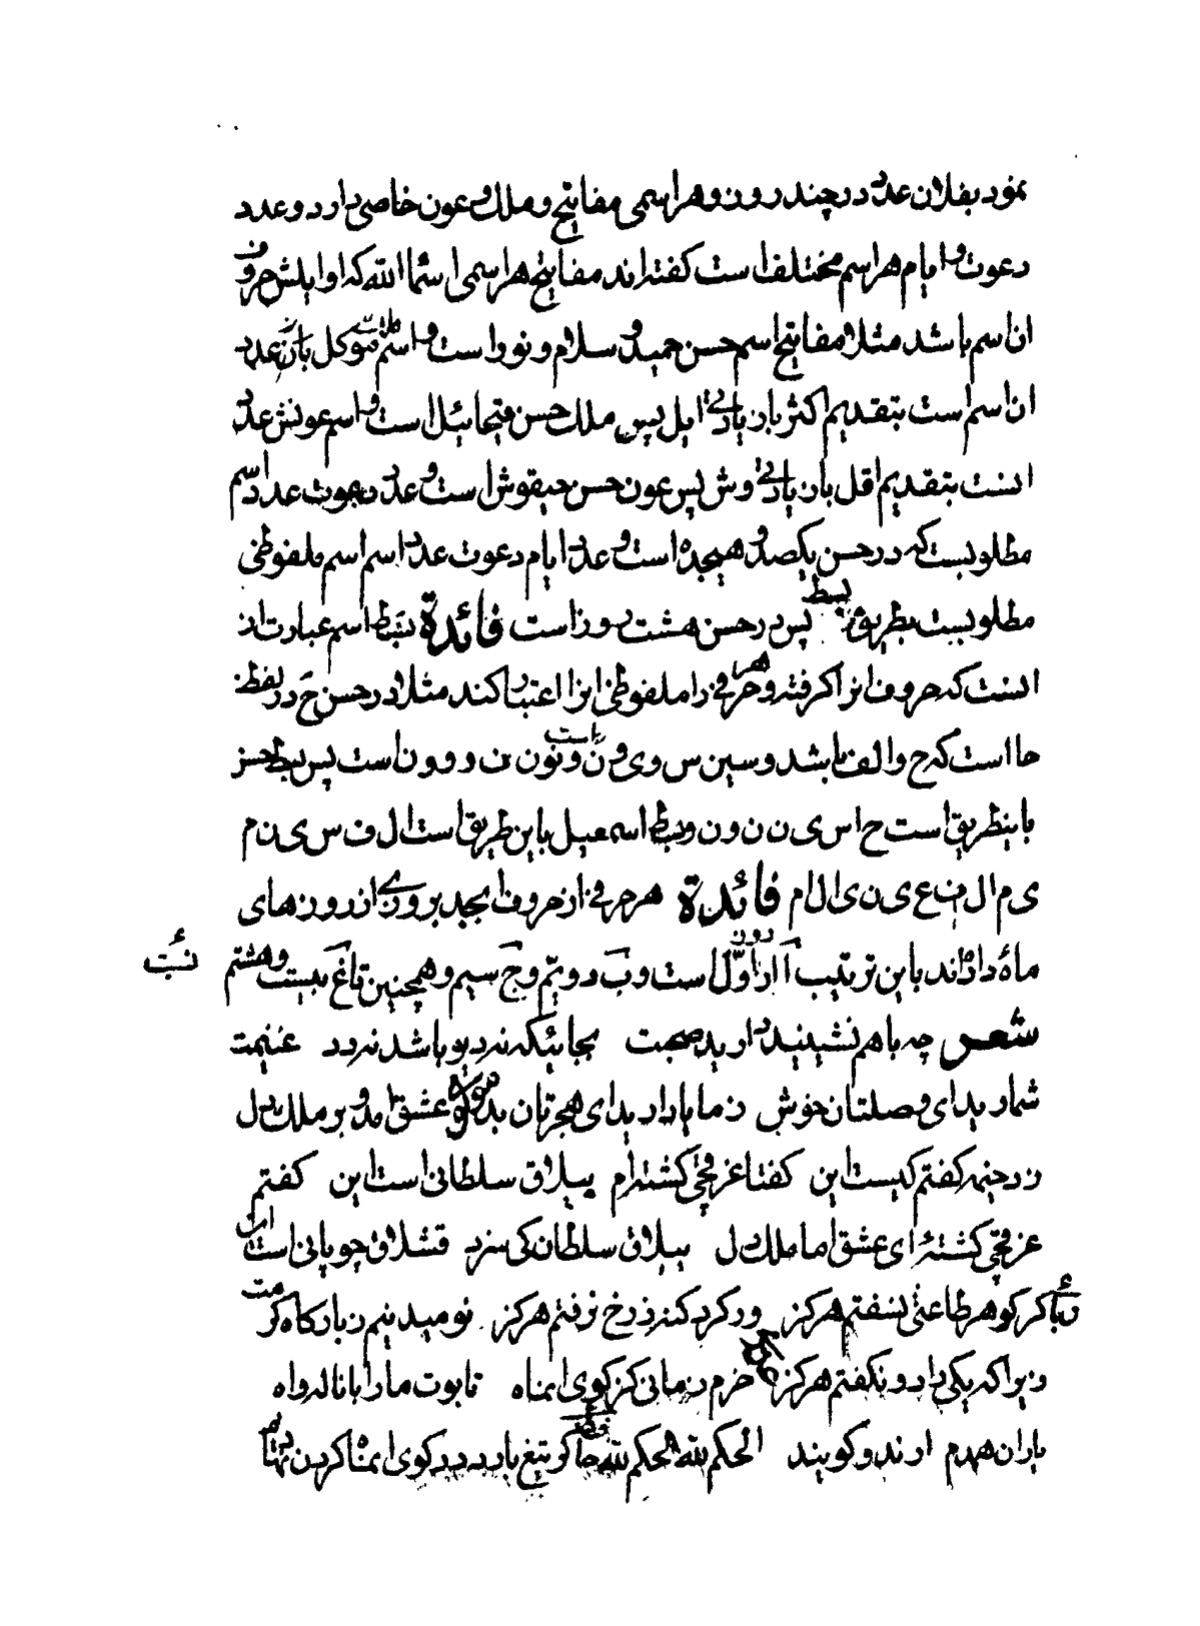 نمود بفلان عدد در چند روز و هر اسمی مفاتیح و ملک و عون خاصی دارد و عدد
دعوت و ایام هر اسم مختلف است گفته اند مفاتیح هر اسمی اسماء الله که اوایلش حروف
ان اسم باشد مثلا مفاتیح اسم حسن حمید و سلام و نور است و اسم ملک موکل بان عدد
ان اسم است بتقدیم اکثر بان یادتی ایل پس ملک حسن قیحائیل است و اسم عونش عدد
انست بتقدیم اقل بان یادتی وش پس عون حسن حیقوش است و عدد دعوت عدد اسم
مطلوبست که در حسن یکصد و هیجده است و عدد ایام دعوت عدد اسم اسم ملفوظی
مطلوبست بطریق بسط پس در حسن هشت روز است فائدة بسط اسم عبارت از
انست که حروف انرا گرفته و هر حرفی را ملفوظی انرا اعتبار کند مثلا در حسن ح در لفظ
حا است که ح والف باشد و سین س و ی و ن است و نون ن و و و ن است پس بسط حسن
باینطریق است ح ا س ی ن ن و ن و بسط اسمعیل باین طریق است ا ل ف س ی ن م
ی م ا ل ف ع ی ن ی ا ل ا م فائدة هر حرفی از حروف ابجد بروزی از روزهای
ماه داده‌اند باین ترتیب آ از روز اول است و ب دویم و ج سیم و همچنین تا غ بیست و هشتم
شعر چه باهم نشینید دارید صحبت بجائیکه نردبو باشد نه دد غنیمت
شمارید ای وصلتان خوش ز ما یاد ارید ای هجرتان بد عشق امد و بر ملک دل
زد خیمه گفتم کیست این گفتا عرفچی گشته‌ام ییلاق سلطانی است این گفتم
عرفچی گشته‌ای عشق اما ملک دل ییلاق سلطان کی سزد قشلاق چوپانی است این
گر گوهر طاعتی نسفتم هرگز ور گرد گنه ز رخ نرفتم هرگز نومید نیم ز بارگاه کرمت
زیرا که یکی را دو نگفتم هرگز خرم زمانی کز کوی انماه تابوت ما را با ناله و اه
یاران همدم ارند و گویند الحکم لله الحکم لله گر تیغ بارد در کوی انماه گردن نهادیم